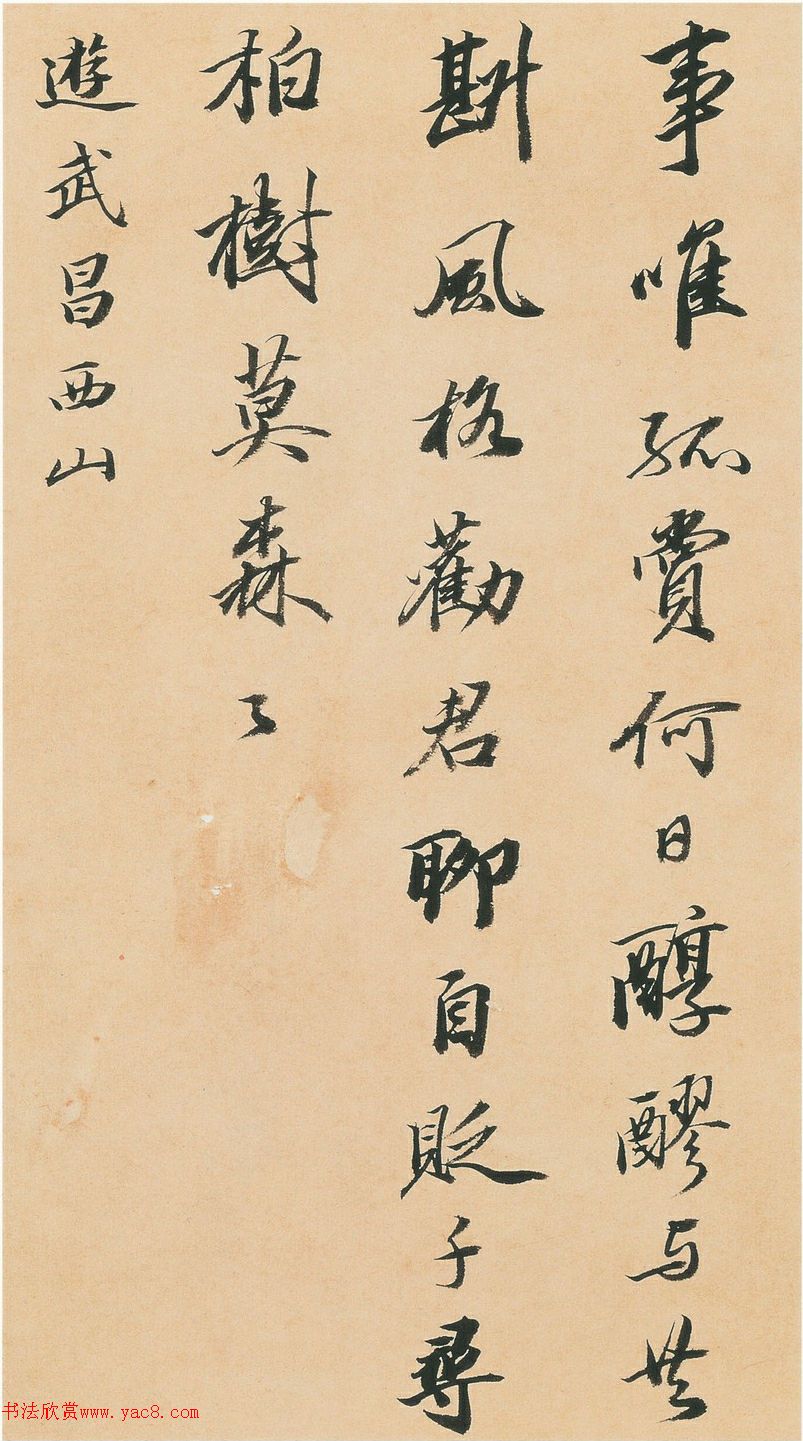 事唯孤賞何日醇醪与共
斟風格勸君聊自貶千尋
柏樹莫森々
遊武昌西山
书法欣赏www.yac8.com